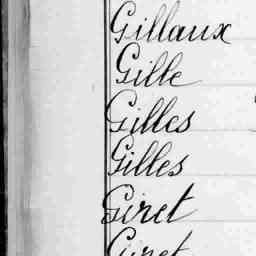 Gillaux
Gille
Gilles
Gilles
Giret
Giret